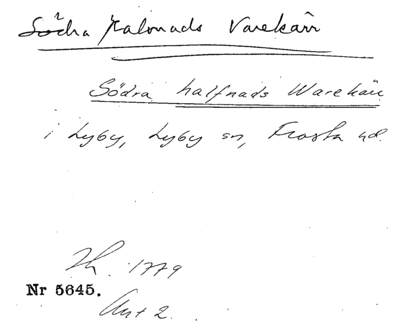 Södra Halvnads Varekärr
Södra halfnads Warekärr
i Lyby, Lyby sn, Frosta hd.
1779
Nr 5645.
Akt 2.